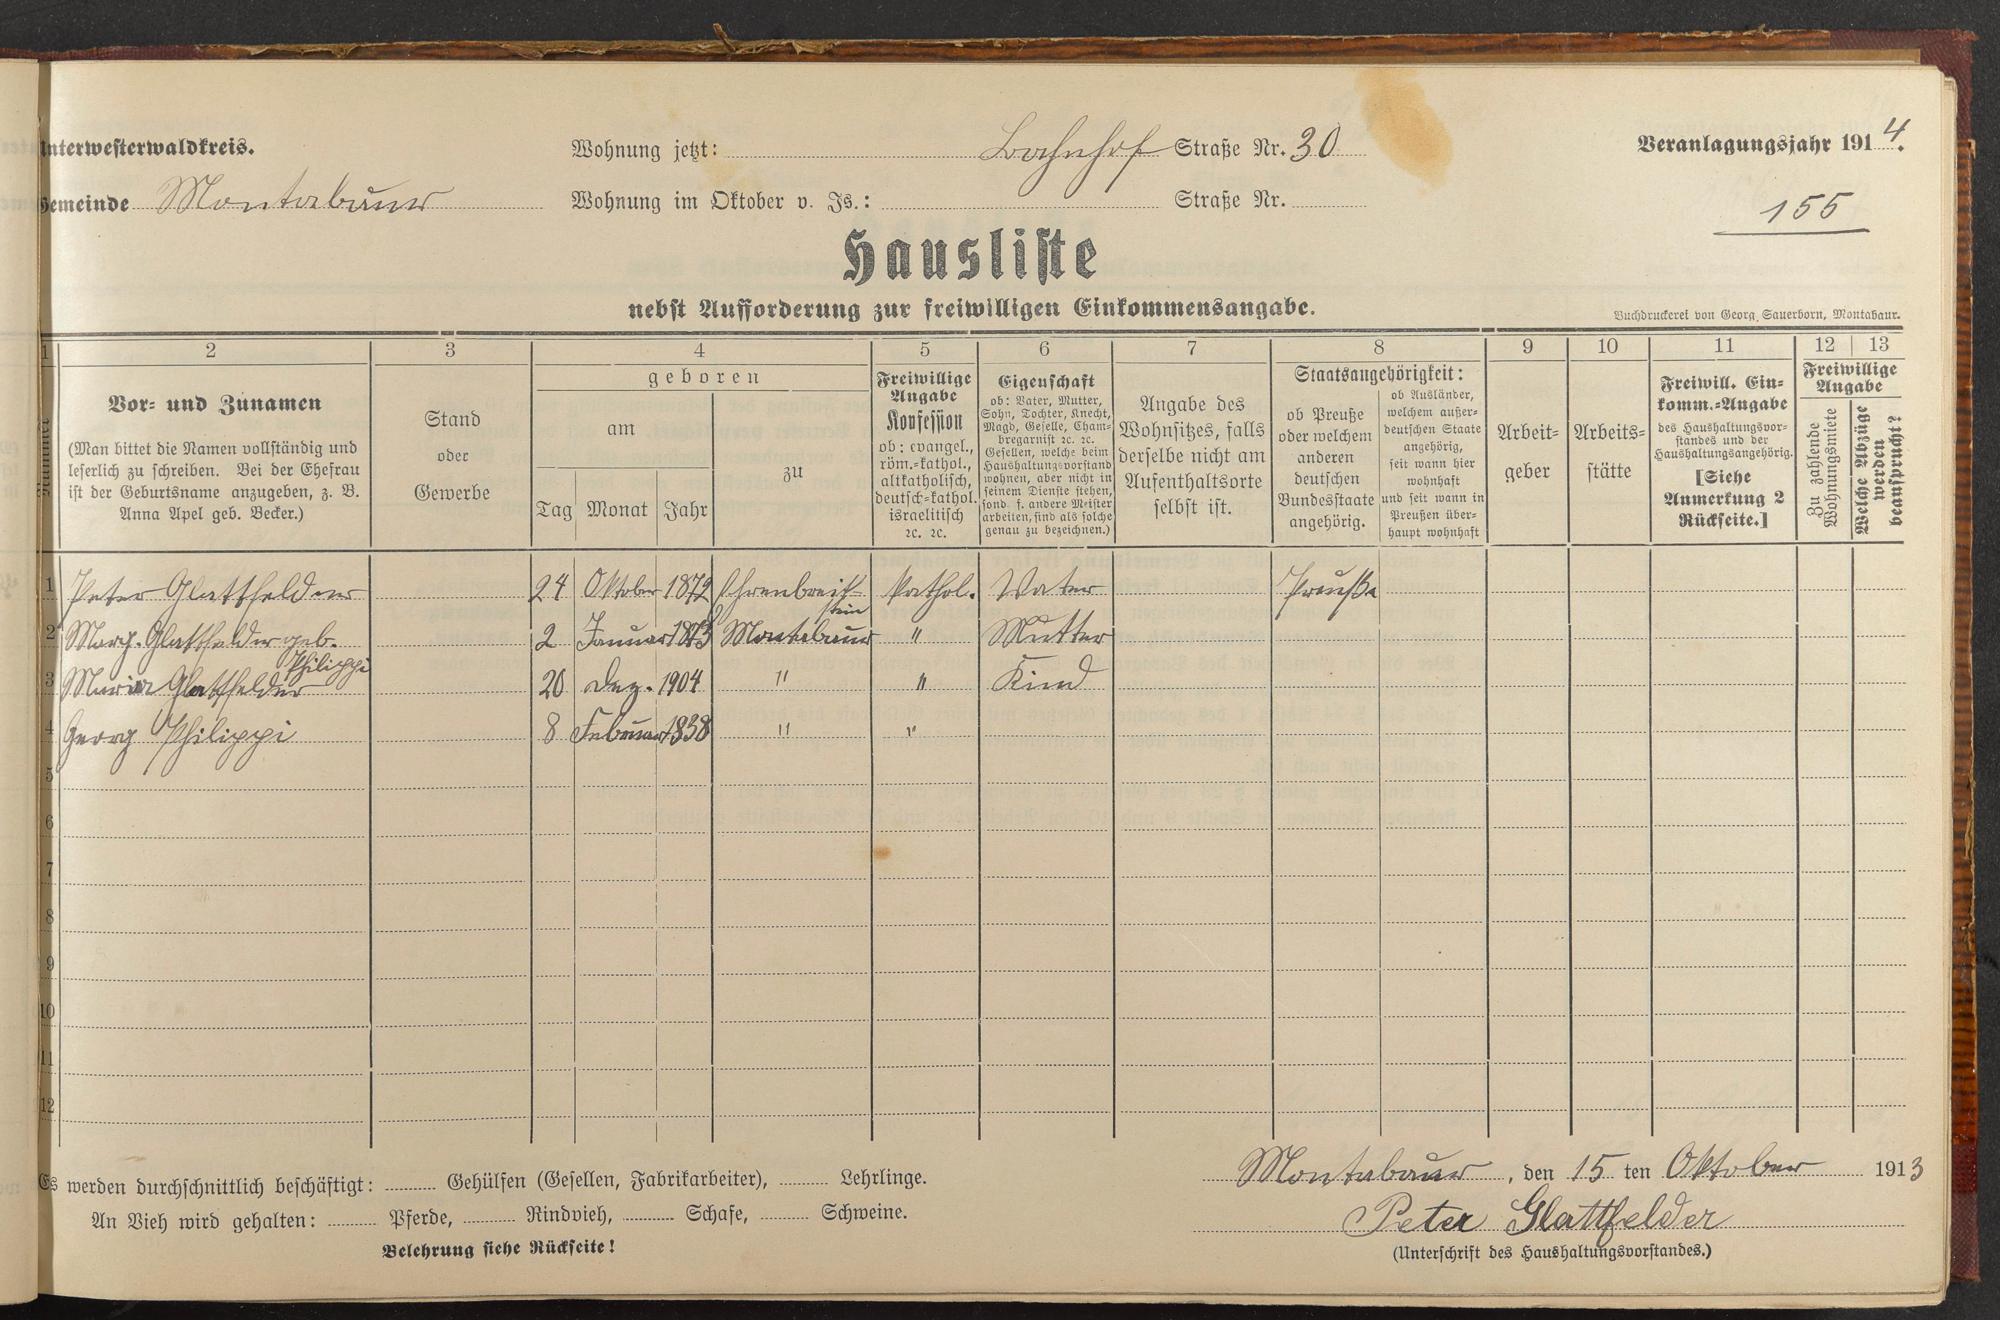 Unterwesterwaldkreis.
Wohnung jetzt: Bahnhof Straße Nr. 30
Veranlagungsjahr 1914.
Gemeinde Montabaur
Wohnung im Oktober v. Js.: Straße Nr.
155
Hausliste
nebst Aufforderung zur freiwilligen Einkommensangabe.
Buchdruckerei von Georg Sauerborn, Montabaur.
1 2 3 4 5 6 7 8 9 10 11 12 13
Nummer
Vor- und Zunamen
(Man bittet die Namen vollständig und
leserlich zu schreiben. Bei der Ehefrau
ist der Geburtsname anzugeben, z. B.
Anna Apel geb. Becker.)
Stand
oder
Gewerbe
geboren
am
Tag Monat Jahr
zu
Freiwillige
Angabe
Konfession
ob: evangel.,
röm.-kathol.,
altkatholisch,
deutsch-kathol.
israelitisch
ꝛc. ꝛc.
Eigenschaft
ob: Vater, Mutter,
Sohn, Tochter, Knecht,
Magd, Geselle, Cham-
bregarnist ꝛc. ꝛc.
Gesellen, welche beim
Haushaltungsvorstand
wohnen, aber nicht in
seinem Dienste stehen,
sond. f. andere Meister
arbeiten, sind als solche
genau zu bezeichnen.)
Angabe des
Wohnsitzes, falls
derselbe nicht am
Aufenthaltsorte
selbst ist.
Staatsangehörigkeit:
ob Preuße
oder welchem
anderen
deutschen
Bundesstaate
angehörig.
ob Ausländer,
welchem außer-
deutschen Staate
angehörig,
seit wann hier
wohnhaft
und seit wann in
Preußen über-
haupt wohnhaft
Arbeit-
geber
Arbeits-
stätte
Freiwill. Ein-
komm.-Angabe
des Haushaltungsvor-
standes und der
Haushaltungsangehörig.
[Siehe
Anmerkung 2
Rückseite.]
Freiwillige
Angabe
Zu zahlende
Wohnungsmiete
Welche Abzüge
werden
beansprucht?
1 Peter Glattfelder 24 Oktober 1872 Ehrenbreit- kathol. Vater Preuße
stein
2 Marg. Glattfelder geb. 2 Januar 1873 Montabaur " Mutter
Philippi
3 Maria Glattfelder 20 Dez. 1904 " " Kind
4 Georg Philippi 8 Februar 1838 " "
5
6
7
8
9
10
11
12
Es werden durchschnittlich beschäftigt: Gehülfen (Gesellen, Fabrikarbeiter), Lehrlinge.
Montabaur, den 15 ten Oktober 1913
An Vieh wird gehalten: Pferde, Rindvieh, Schafe, Schweine.
Peter Glattfelder
Belehrung siehe Rückseite!
(Unterschrift des Haushaltungsvorstandes.)